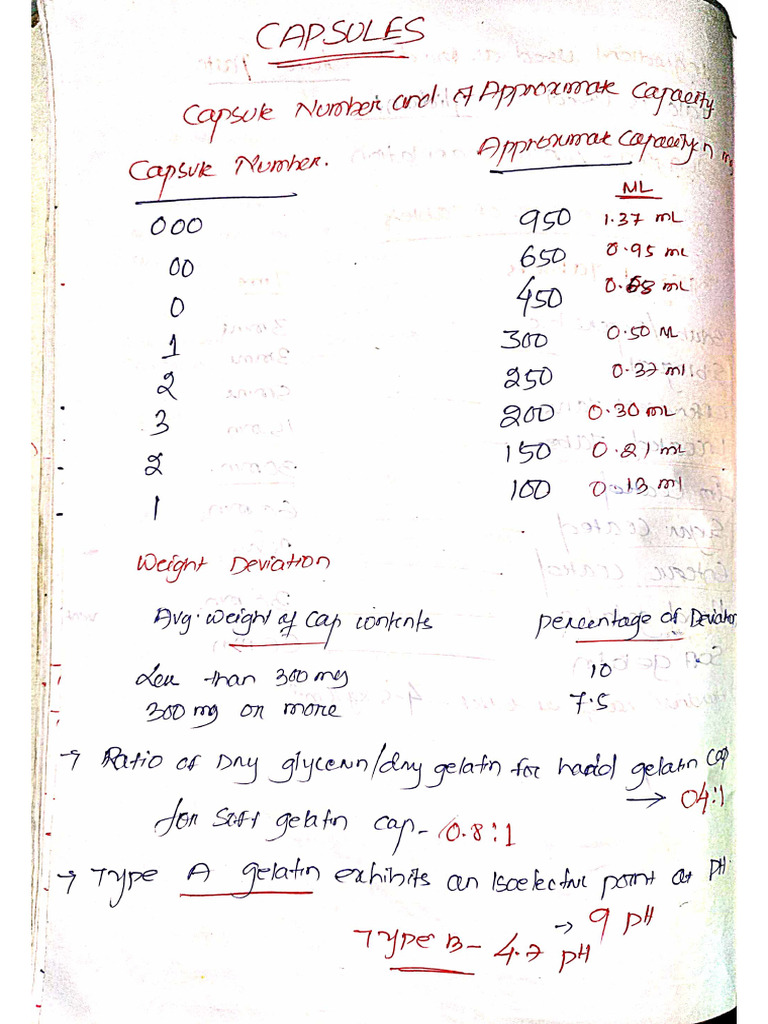 CAPSULES
Capsule Number and of Approximate Capacity
Capsule Number. Approximate Capacity in mg
ML
000 950 1.37 mL
00 650 0.95 mL
0 450 0.68 mL
1 300 0.50 ML
2 250 0.37 ml
3 200 0.30 mL
2 150 0.21 mL
1 100 0.13 ml
Weight Deviation
Avg. weight of Cap contents percentage of Deviation
Less than 300mg 10
300mg or more 7.5
→ Ratio of Dry glycerin/dry gelatin for hadd gelatin cap
→ 04:1
for soft gelatin cap - 0.8:1
→ Type A gelatin exhibits an Isoelectric point at pH
→ 9 pH
Type B - 4.7 pH